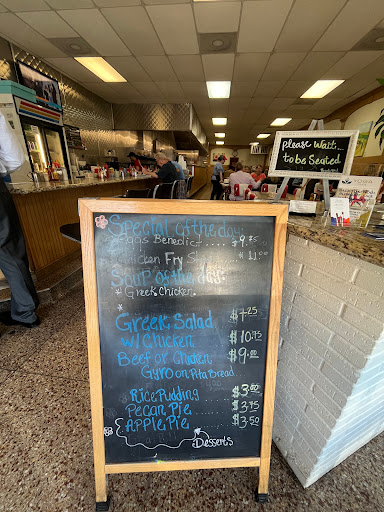 Please Wait...
to be Seated
Special of the day:
Eggs Benedict .... $9.75
Chicken Fry S $11.00
Soup of the day:
* Greek Chicken.
*
Greek Salad $7.25
w/ Chicken $10.75
Beef or Chicken $9.00
Gyro on Pita Bread
Rice Pudding $3.00
Pecan Pie $3.75
Apple Pie $3.50
Desserts